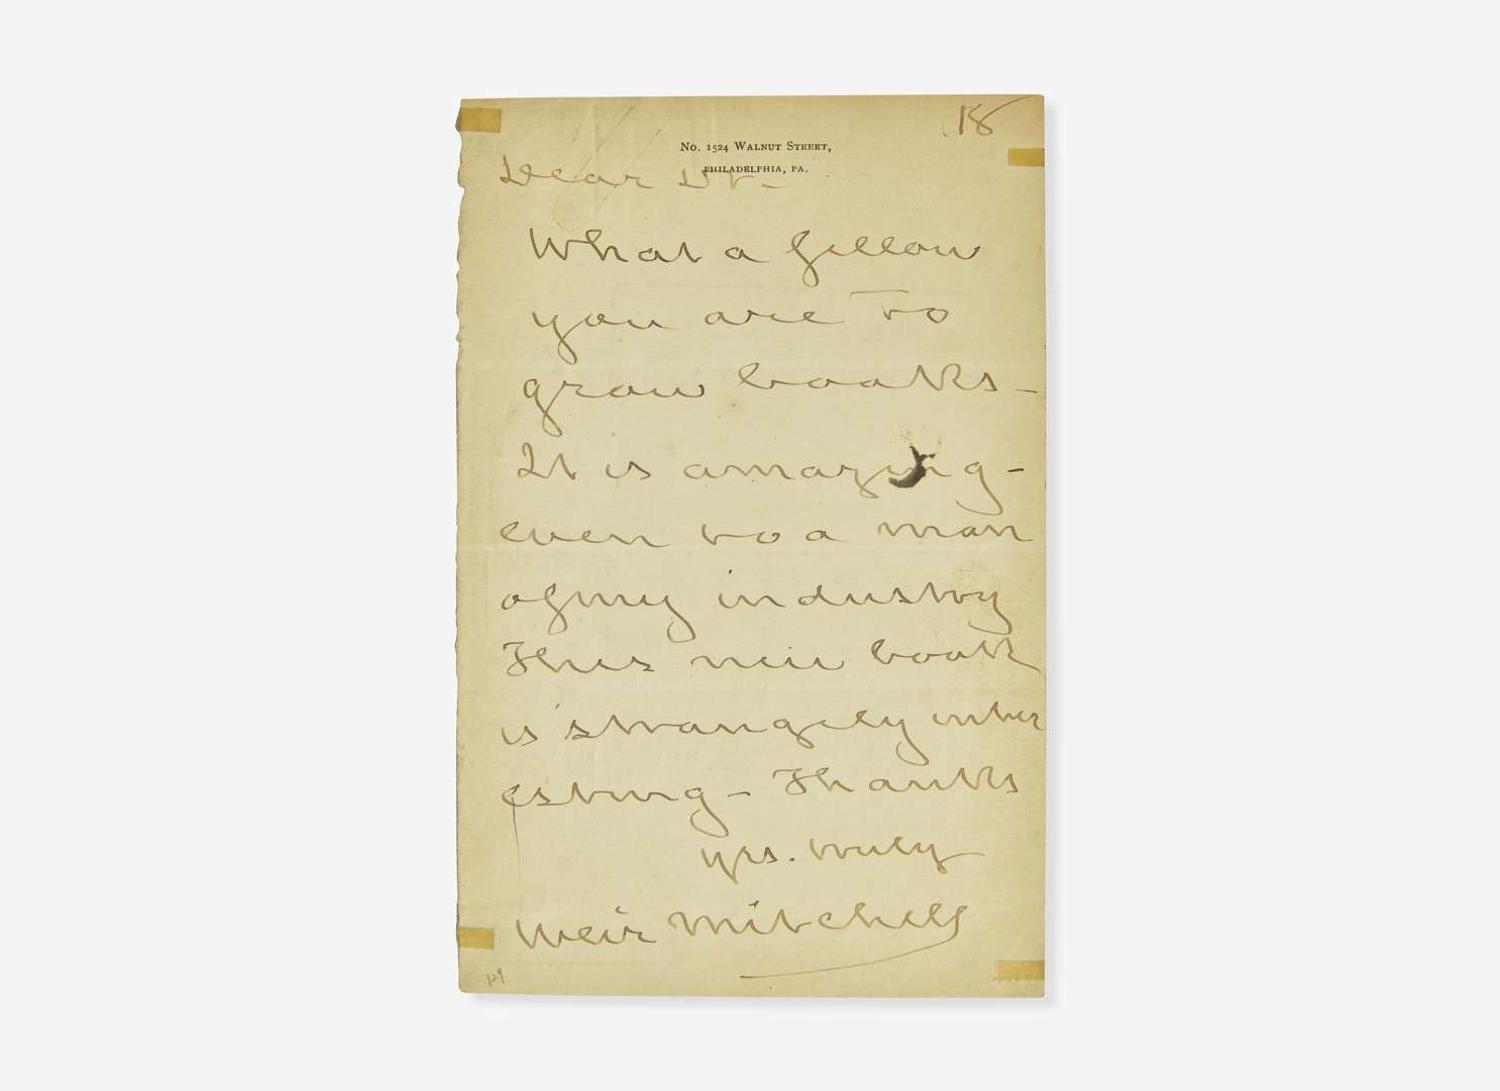 18
No. 1524 Walnut Street,
Philadelphia, Pa.
Dear Dr -
What a fellow
you are to
grow books -
It is amazing -
even to a man
of my industry
This new book
is strangely inter
esting - Thanks
yrs. truly
Weir Mitchell
129